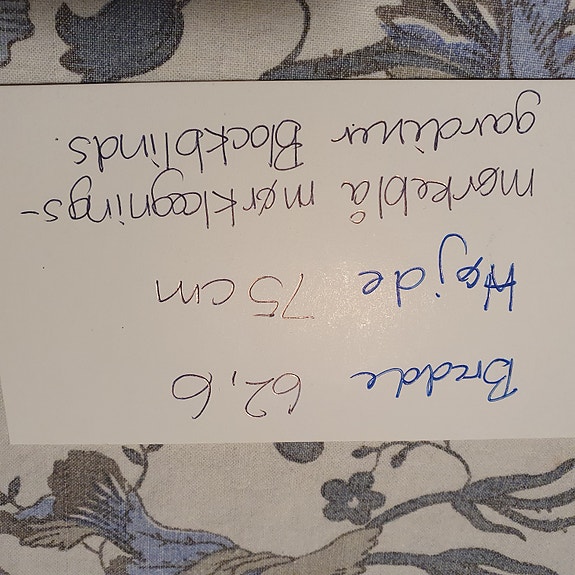 Bredde 62,6
Højde 75 cm
mørkeblå mørklægnings-
gardiner Blockblinds.